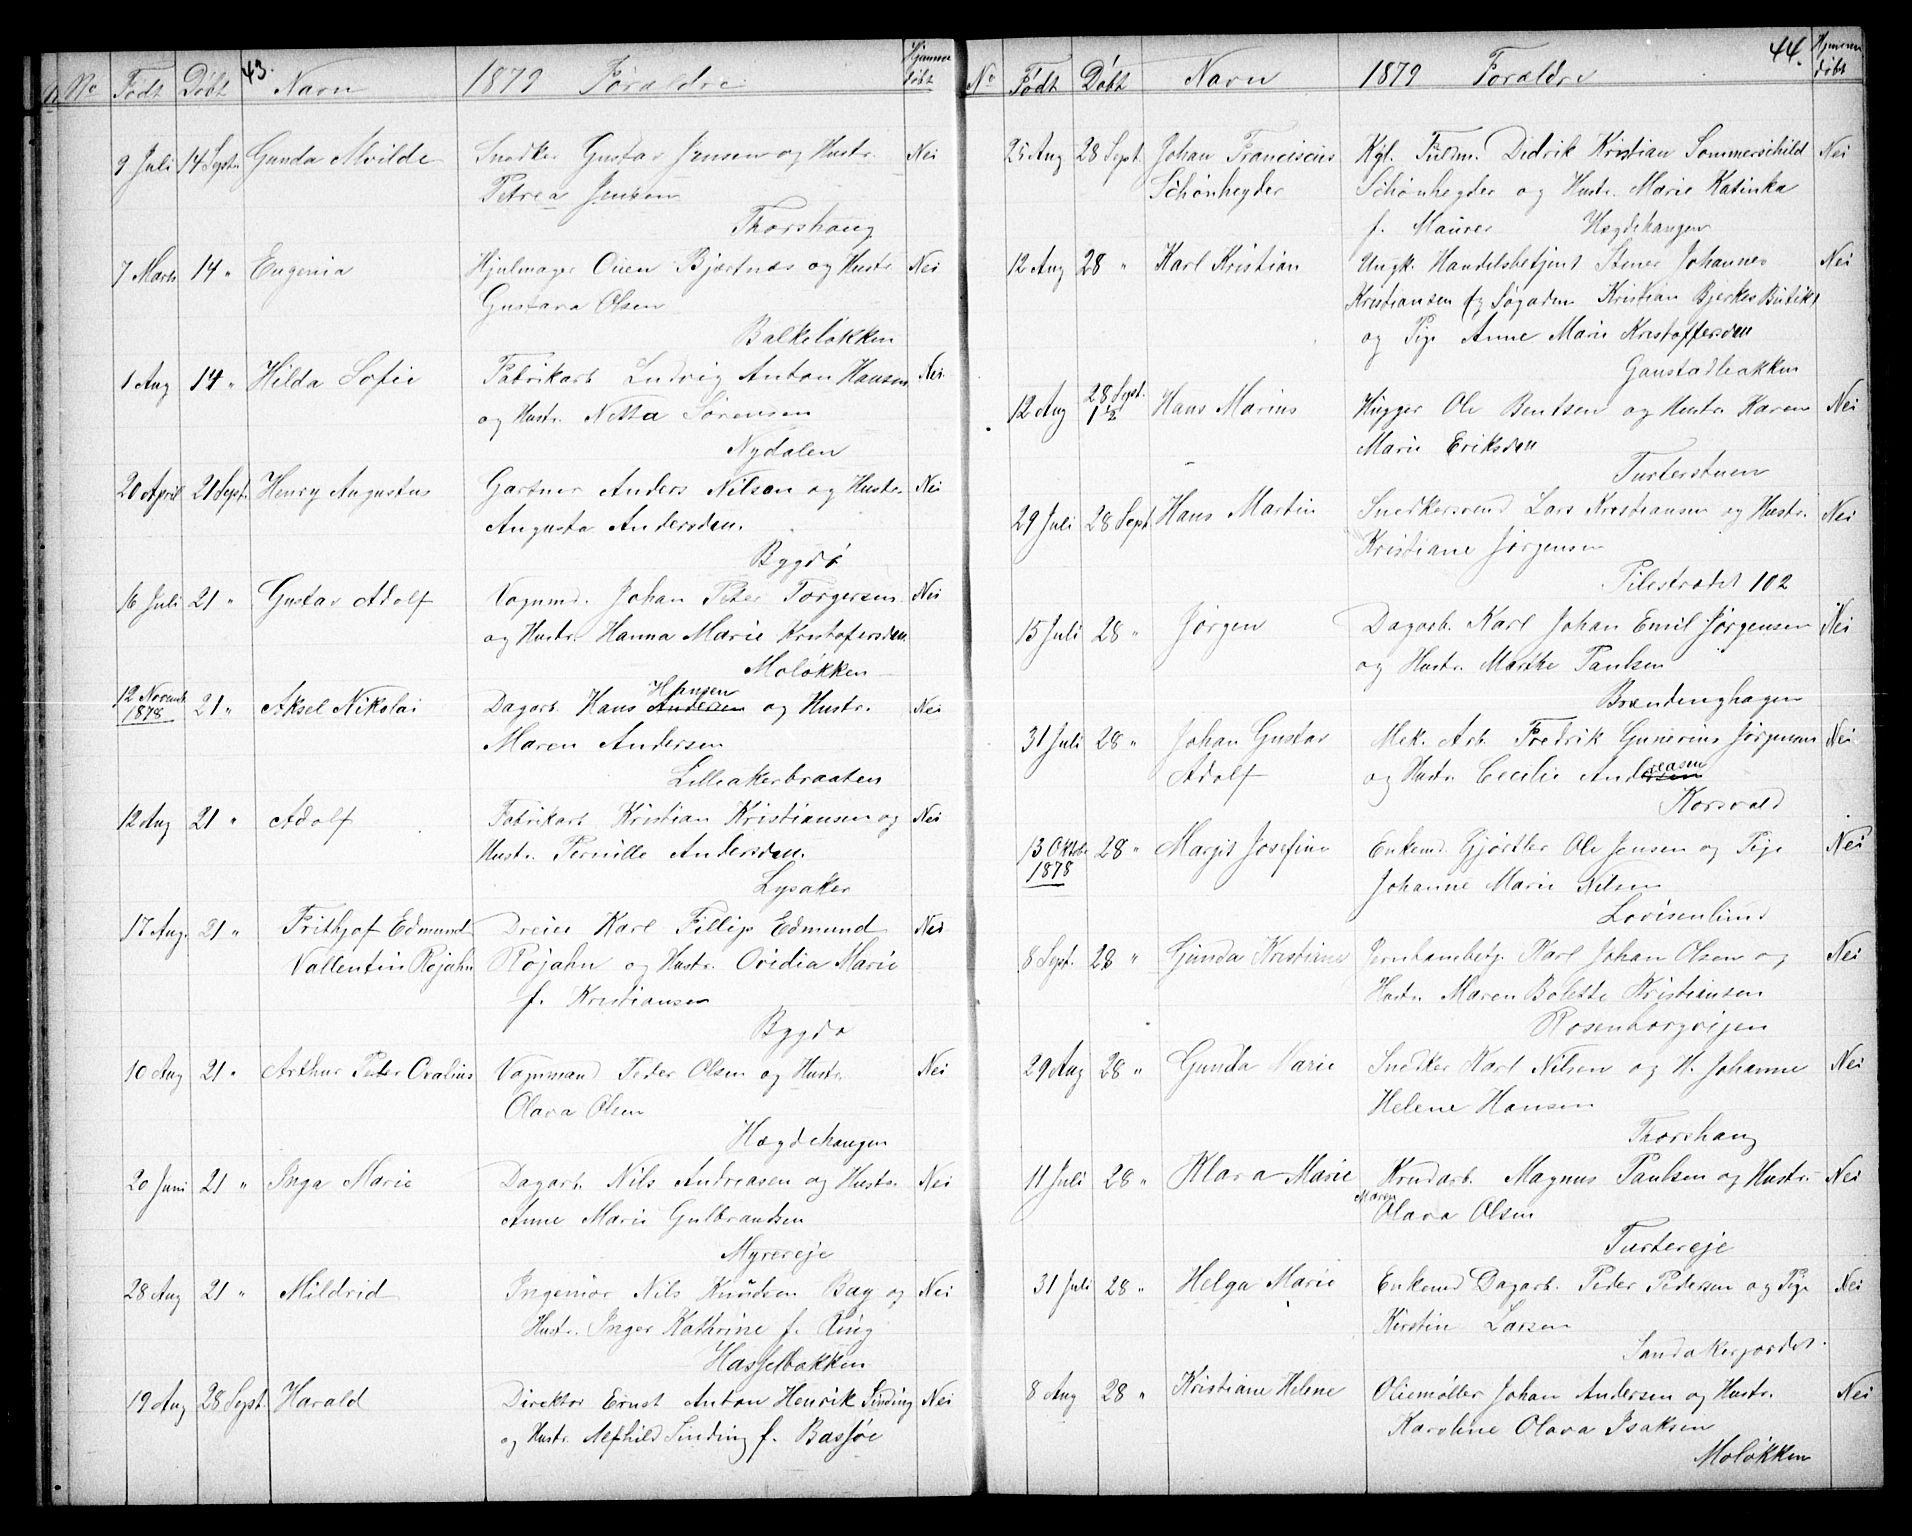 43.
No Født Døbt Navn 1879 Forældre Hjemme døbt
9 Juli 14 Septr. Gunda Alvilde Snedker Gustav Jensen og Hustr. Nei
Petrea Jensen
Thorshaug
7 Marts 14 " Eugenia Hjulmager Oien Bjertnæs og Hustr. Nei
Gustava Olsen
Balkeløkken
1 Aug 14 " Hilda Sofie Fabrikarb. Ludvig Anton Hansen Nei
og Hustr. Netta Sørensen
Nydalen
20 April 21 Sept. Henry Augustus Gartner Anders Nilsen og Hustr. Nei
Augusta Andersdatt.
Bygdø
16 Juli 21 " Gustav Adolf Vognmd. Johan Peter Torgersen Nei
og Hustr. Hanna Marie Kristofersdatt
Moløkken
12 Novemb. 1878 21 " Aksel Nikolai Dagarb. Hans Andersen Hansen og Hustr. Nei
Maren Andersen
Lilleakerbraaten
12 Aug 21 " Adolf Fabrikarb. Kristian Kristiansen og Nei
Hustr. Pernille Andersdatt.
Lysaker
17 Aug. 21 " Frithjof Edmund Dreier Karl Fillip Edmund Nei
Vallentin Rojahn Rojahn og Hustr. Ovidia Marie
f. Kristiansen
Bygdø
10 Aug 21 " Arthur Peder Ovalius Vognmand Peder Olsen og Hustr. Nei
Olava Olsen
Hægdehaugen
20 Juni 21 " Inga Marie Dagarb. Nils Andreasen og Hustr. Nei
Anne Marie Gulbrandsen
Myrereje
28 Aug 21 " Mildrid Ingeniør Nils Knudsen Bay og Nei
Hustr. Inger Kathrine f. Ring
Hasselbakken
19 Aug 28 Sept. Harald Direktør Ernst Anton Henrik Sinding Nei
og Hustr. Alfhild Sinding f. Bassøe
44.
No Født Døbt Navn 1879 Forældre Hjemme døbt
25 Aug 28 Sept. Johan Franciscus Kgl. Fuldm. Didrik Kristian Sommerschild Nei
Schønheyder Schønheyder og Hustr. Marie Katinka
f. Maurer Hægdehaugen
12 Aug 28 " Karl Kristian Ungk. Handelsbetjent Stener Johannes Nei
Kristiansen Søgaden Kristian Bjerkes Butik
og Pige Anne Marie Kristoffersdatt
Gaustadbakken
12 Aug 28 Sept. 1½ Hans Marius Hugger Ole Bentsen og Hustr. Karen Nei
Marie Eriksdatt
Turterstuen
29 Juli 28 Sept. Hans Martin Snedkersvend Lars Kristiansen og Hustr. Nei
Kristiane Jørgensen
Pilestrædet 102
15 Juli 28 " Jørgen Dagarb. Karl Johan Emil Jørgensen Nei
og Hustr. Marthe Paulsen
Brændenghagen
31 Juli 28 " Johan Gustav Mek. Arb. Fredrik Gunerius Jørgensen Nei
Adolf og Hustr. Cecilie Andreasen
Korsvold
13 Oktobr 1878 28 " Margit Josefine Enkemd. Gjørtler Ole Jensen og Pige Nei
Johanne Marie Nilsen
Lovisenlund
8 Sept. 28 " Gunda Kristiane Jernbanebetj. Karl Johan Olsen og Nei
Hustr. Maren Bolette Kristiansen
Rosenborgvejen
29 Aug 28 " Gunda Marie Snedker Karl Nilsen og H. Johanne Nei
Helene Hansen
Thorshaug
11 Juli 28 " Klara Marie Krudarb. Magnus Paulsen og Hustr. Nei
Maren Olava Olsen
Turtereje
31 Juli 28 " Helga Marie Enkemd Dagarb. Peder Pedersen og Pige Nei
Kirstin Larsen
Sandakerjordet.
8 Aug 28 " Kristiane Helene Oliemøller Johan Andersen og Hustr. Nei
Karoline Olava Isaksen
Moløkken